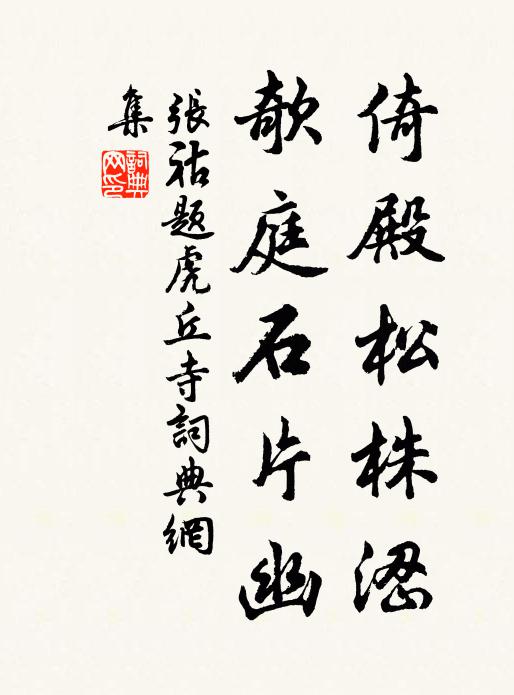 倚殿松株澀
欹庭石片幽
張祜題虎丘寺詞典網
集
詞典网印